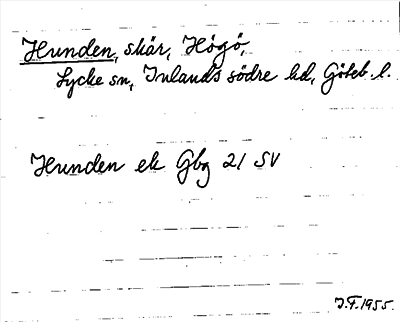 Hunden, skär, Högö,
Lycke sn, Inlands södre hd, Göteb. l.
Hunden ek Gbg 21 SV
J.F. 1955.